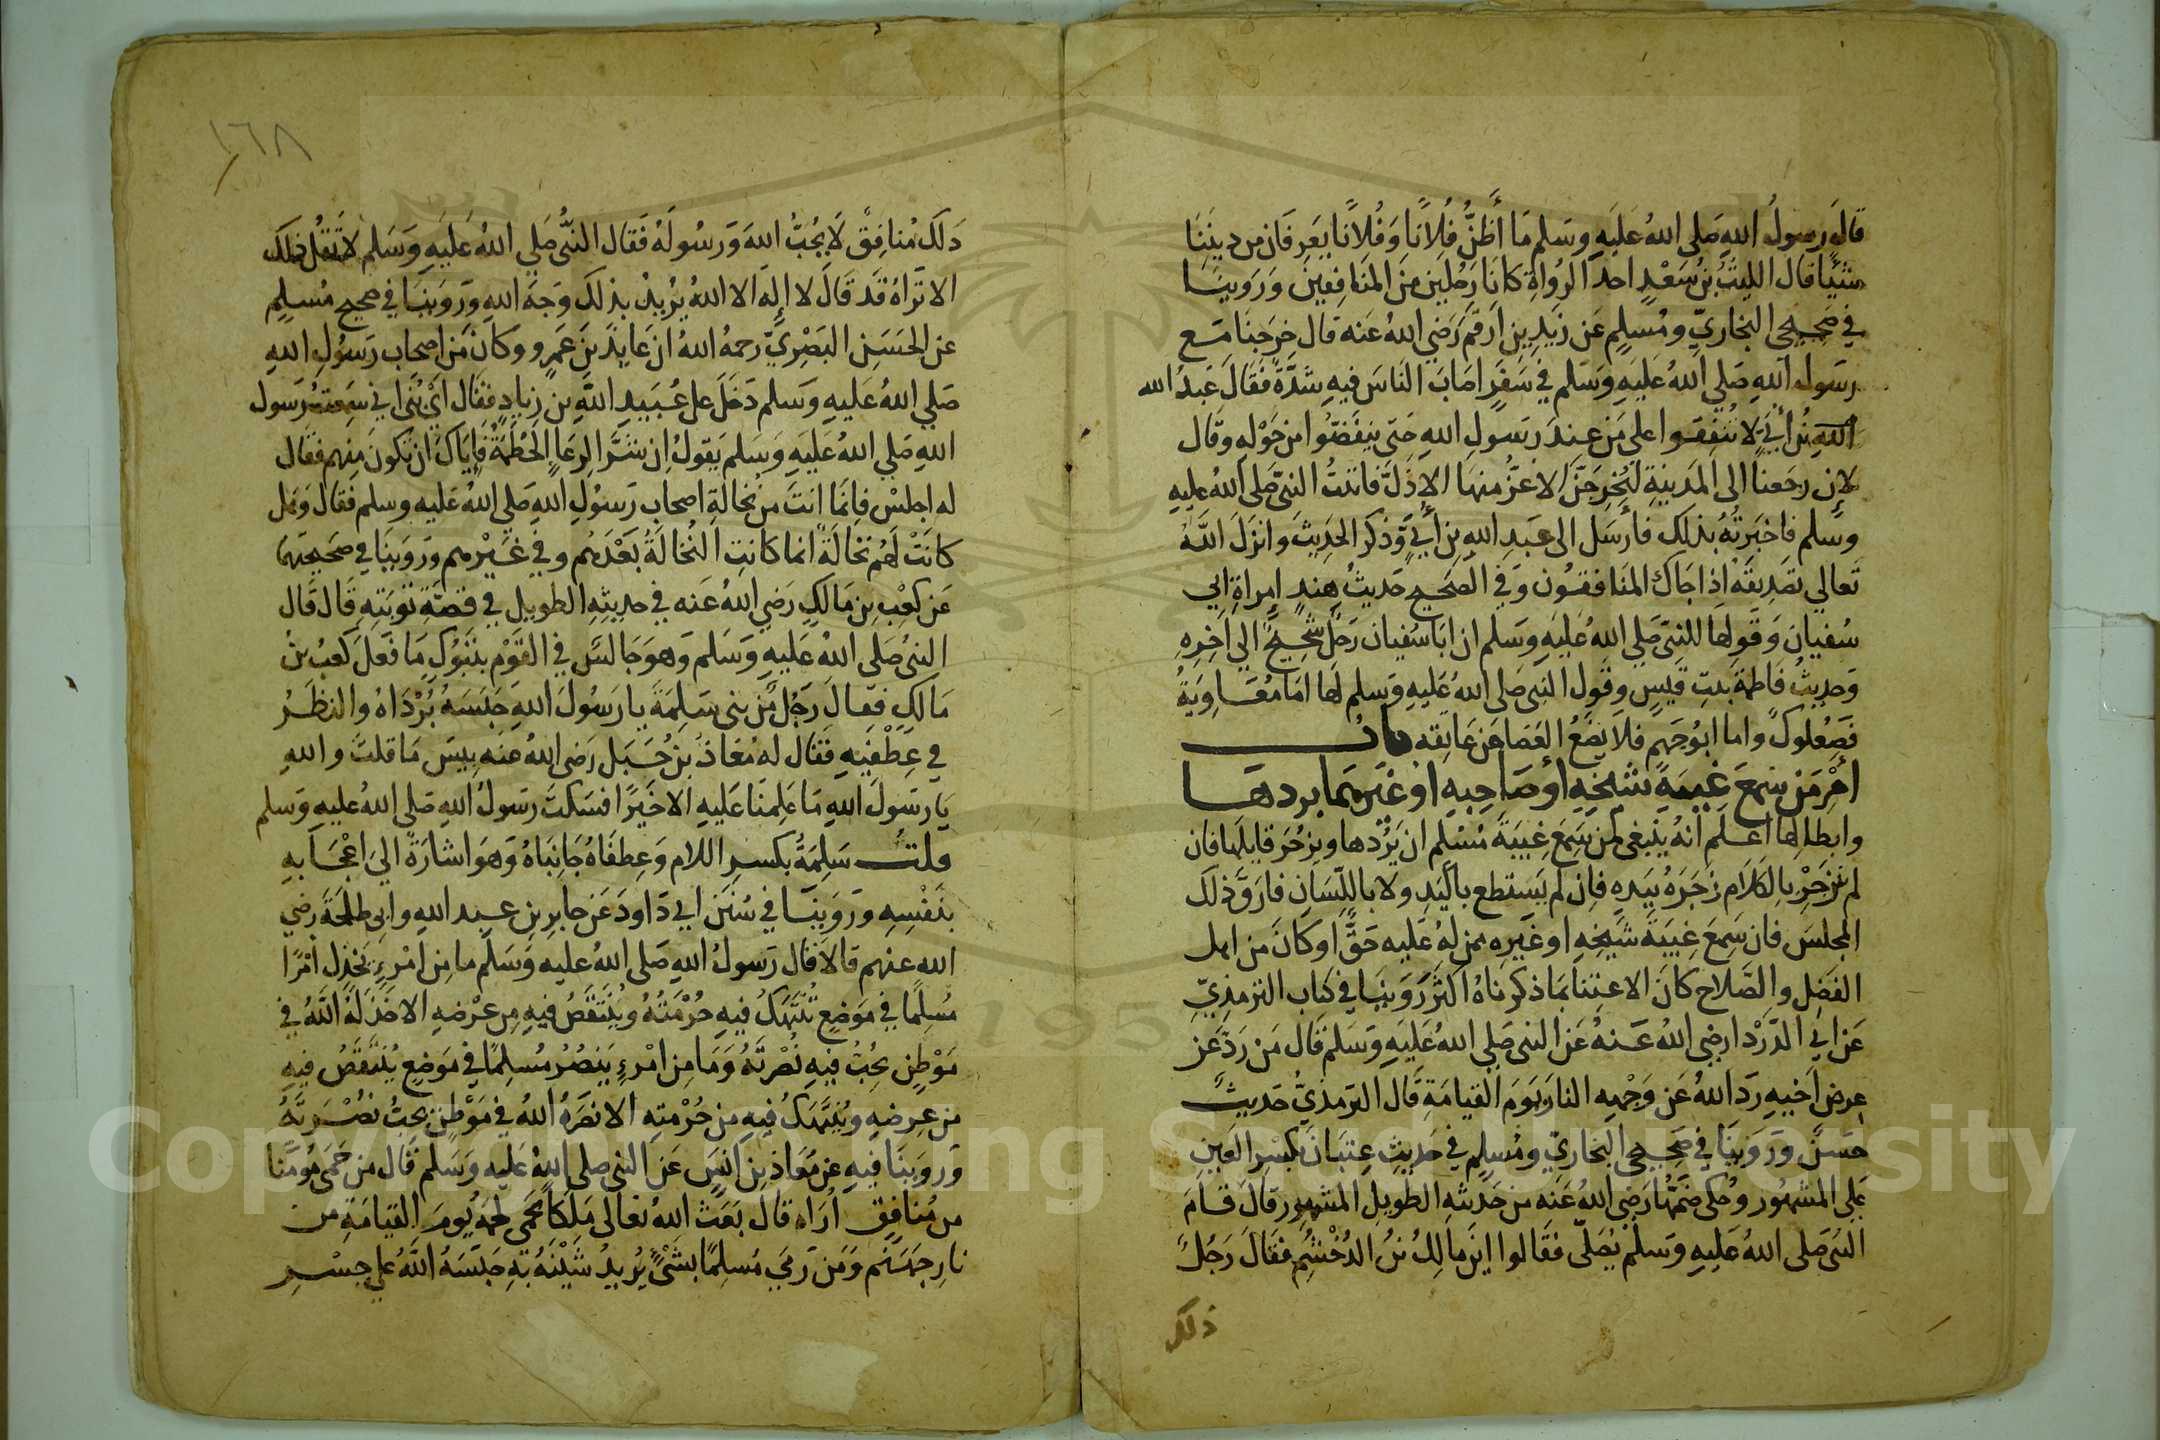 قالَ رسولُ اللهِ صَلى اللهُ عَليَهِ وسَلم مَا أَظنُّ فُلانًا وَفُلانًا يَعرِفَانِ من دِيننَا
شَيئًا قال الليثُ بنُ سَعْدٍ احدُ الرُواةِ كانَا رَجُلين منَ المنَافِقينَ وَرَوينَا
في صَحيحي البخاريّ ومُسلمٍ عَن زَيدِ بن ارقمَ رَضي اللهُ عَنه قال خرَجنَا مَع
رسَول اللهِ صَلي اللهُ عَليَهِ وسَلم في سَفَرٍ اصَابَ الناسَ فيهِ شدَّةٌ فَقَالَ عَبدُ الله
اللهِ بنُ أُبَيٍّ لا تُنفِقوا على مَن عِندَ رسَولِ اللهِ حتى ينفَضّوا من حَوْلهِ وقال
لإن رجَعنا الى المَدينةِ ليُخرجَنّ الاعَزُّ منها الاذَلَّ فاتيتُ النبيَّ صَلى اللهُ عليهِ
وسلم فاخبَرتُهُ بذلِك فأرسَل الى عَبدِ اللهِ بن أُبَيٍّ وذكر الحَديثَ وانزَلَ اللهُ
تَعالي تصَديقَهُ اذا جَاك المنَافقون وَفي الصَحيح حَديثُ هِندٍ امراةِ ابي
سُفيانَ وَقولها للنبيِّ صَلي اللهُ عليَهِ وسَلم ان ابَا سُفيان رَجُلٌ شَحِيحٌ الي اخِرِهِ
وَحديثُ فاطمَةَ بنتِ قيسٍ وقولِ النبي صَلى اللهُ عَليهِ وسلم لَها امَا مُعَاويَةُ
فصَعلوكٌ واما ابوُ جَهمٍ فلا يضَعُ العَصَا عَن عَاتِقه بابُ
امْرِ مَن سَمعَ غِيبَةَ شَيخِهِ أو صَاحِبهِ او غيَرِهمَا بردهَا
وابطالِها اعلم انهُ ينبَغي لمن سَمِعَ غيبَةَ مُسْلم ان يَرُدها ويزجُرَ قايلَها فان
لم ينزجِرْ بالكلام زجَرَهُ بيَدِهِ فان لم يَستطع باليَدِ ولا باللِسَانِ فارَقَ ذلك
المجلسَ فان سَمِعَ غيبَةَ شَيخِهِ او غيَرِهِ ممن لهُ عَليه حَقٌّ او كانَ من اهل
الفضلِ والصَّلاح كانَ الاعتِنا بمَا ذكرناهُ اكثرَ رَوينَا في كتاب الترمذيّ
عَن ابي الدّرْدا رضي اللهُ عَنهُ عَن النبي صَلي اللهُ عَليَهِ وَسَلم قال مَن رَدَّ عَن
عِرض اخيهِ ردَ اللهُ عَن وَجْههِ النارَ يَومَ القيامَةِ قال الترمذيُّ حَديثٌ
حسَنٌ وَرَوينَا في صَحيحي البخاريّ ومُسلمٍ في حَديثِ عِتبَانَ بكسْرِ العَينِ
عَلى المشهُورِ وحُكي ضَمّهَا رَضي اللهُ عَنه من حَديثهِ الطويلِ المشهورِ قال قامَ
النبيّ صَلى اللهُ عَليهِ وَسلم يُصَلّي فقالوا اينَ مالِكُ بنُ الدُخْشُمِ فقالَ رَجُلٌ
ذلك
١٦٨
ذَلكَ مُنافِقٌ لَا يُحِبُّ اللهَ وَرسُولَهُ فَقال النبُّي صَلي اللهُ عَليَهِ وَسَلم لا تَقُل ذلك
الا تَراهُ قَد قَالَ لا إلهَ الا اللهُ يُريدُ بذلكَ وَجهَ اللهِ وَرَوينَا في صحيح مُسلِمٍ
عن الحَسَنِ البَصْريّ رحمهُ اللهُ ان عَايذَ بَن عَمرٍو وَكانَ من اصحاب رَسُولِ اللهِ
صَلي اللهُ عَليهِ وَسلم دَخَلَ على عُبَيدِ اللهِ بن زيادٍ فقال ايْ بُنَيَّ اني سَمِعتُ رَسول
اللهِ صَلي اللهُ عَليَهِ وَسَلم يَقولُ اِن شَرَّ الرِعَاءِ الحُطَمَةُ فَايّاك ان تكونَ منهم فقَال
له اجلسْ فاِنمَا انتَ من نُخالةِ اصحابِ رَسُولِ اللهِ صَلي اللهُ عَليه وسلم فَقالَ وَهل
كانَتْ لَهُم نخالَةٌ انما كانتِ النُخالَةُ بَعْدَهُم وفي غَيْرهم وَرَوينا في صَحيحَيهما
عَن كعْبِ بن مَالكٍ رَضي اللهُ عَنه في حديثهِ الطويل في قصَّةِ توبَتهِ قَال قال
النبيُ صَلى اللهُ عَليهِ وَسَلم وَهوَ جَالسٌ في القَوْم بتَبُوكَ مَا فَعَلَ كَعبُ بنُ
مَالكٍ فقالَ رَجُلٌ من بَني سَلِمَةَ يا رَسُولَ اللهِ حَبَسَهُ بُرْدَاهُ والنظَرُ
في عِطْفَيهِ فقَال له مُعَاذُ بنُ جَبَلٍ رَضي اللهُ عنه بيسَ مَا قلتَ واللهِ
يَا رسَولَ اللهِ مَا عَلِمنَا عَليهِ الاخَيرًا فسَكتَ رسَولُ اللهِ صَلي اللهُ عليه وَسلم
قلتُ سَلِمَةُ بكسرِ اللام وَعِطفَاهُ جَانِبَاهُ وَهوَ اشارَةٌ اليَ اعْجَابهِ
بنَفْسِهِ وَرَوينَا في سُنَن ابي دَاودَ عَن جابرِ بنِ عبدِ اللهِ وابي طلحَةَ رَضي
الله عنهم قالا قال رَسُولُ اللهِ صَلى اللهُ عليه وَسَلم ما مِن امْرءٍ يخذُل امْرًا
مُسْلِمًا في مَوضعٍ تُنْتَهَكُ فيهِ حُرْمَتُهُ ويُنتقصُ فيهِ مِن عِرْضهِ الا خَذَلهُ اللهُ في
مَوْطِنٍ يُحِبُّ فيهِ نُصْرتَهُ وَمَا مِن امْرءٍ يَنصُرُ مُسلِمًا في مَوضعٍ يُنتقَصُ فيهِ
من عِرضهِ ويُنتَهَكُ فيهِ من حُرْمتهِ الا نصَرَهُ اللهُ في مَوْطنٍ يحبُّ نصْرتَهُ
وَروينَا فيهِ عن مُعاذِ بن انسٍ عَن النبي صلي اللهُ عليه وَسَلم قال من حَمَى مُؤمنًا
من مُنافِقٍ اُرَاه قال بَعَثَ اللهُ تعالى مَلكًا يحَمي لحمَهُ يَومَ القيامَةِ من
نارِ جَهَنمَ وَمَن رَمَي مُسلِمًا بشَيْءٍ يُريدُ شَيْنَهُ بهِ حَبَسَهُ اللهُ على جسْرِ